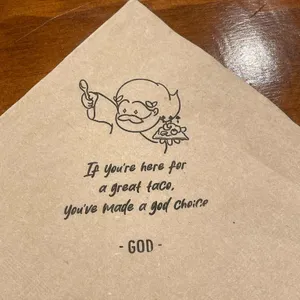 If you're here for
a great taco,
you've made a god choice
- GOD -